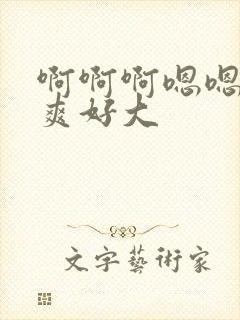 啊啊啊嗯嗯
爽好大
文字藝術家